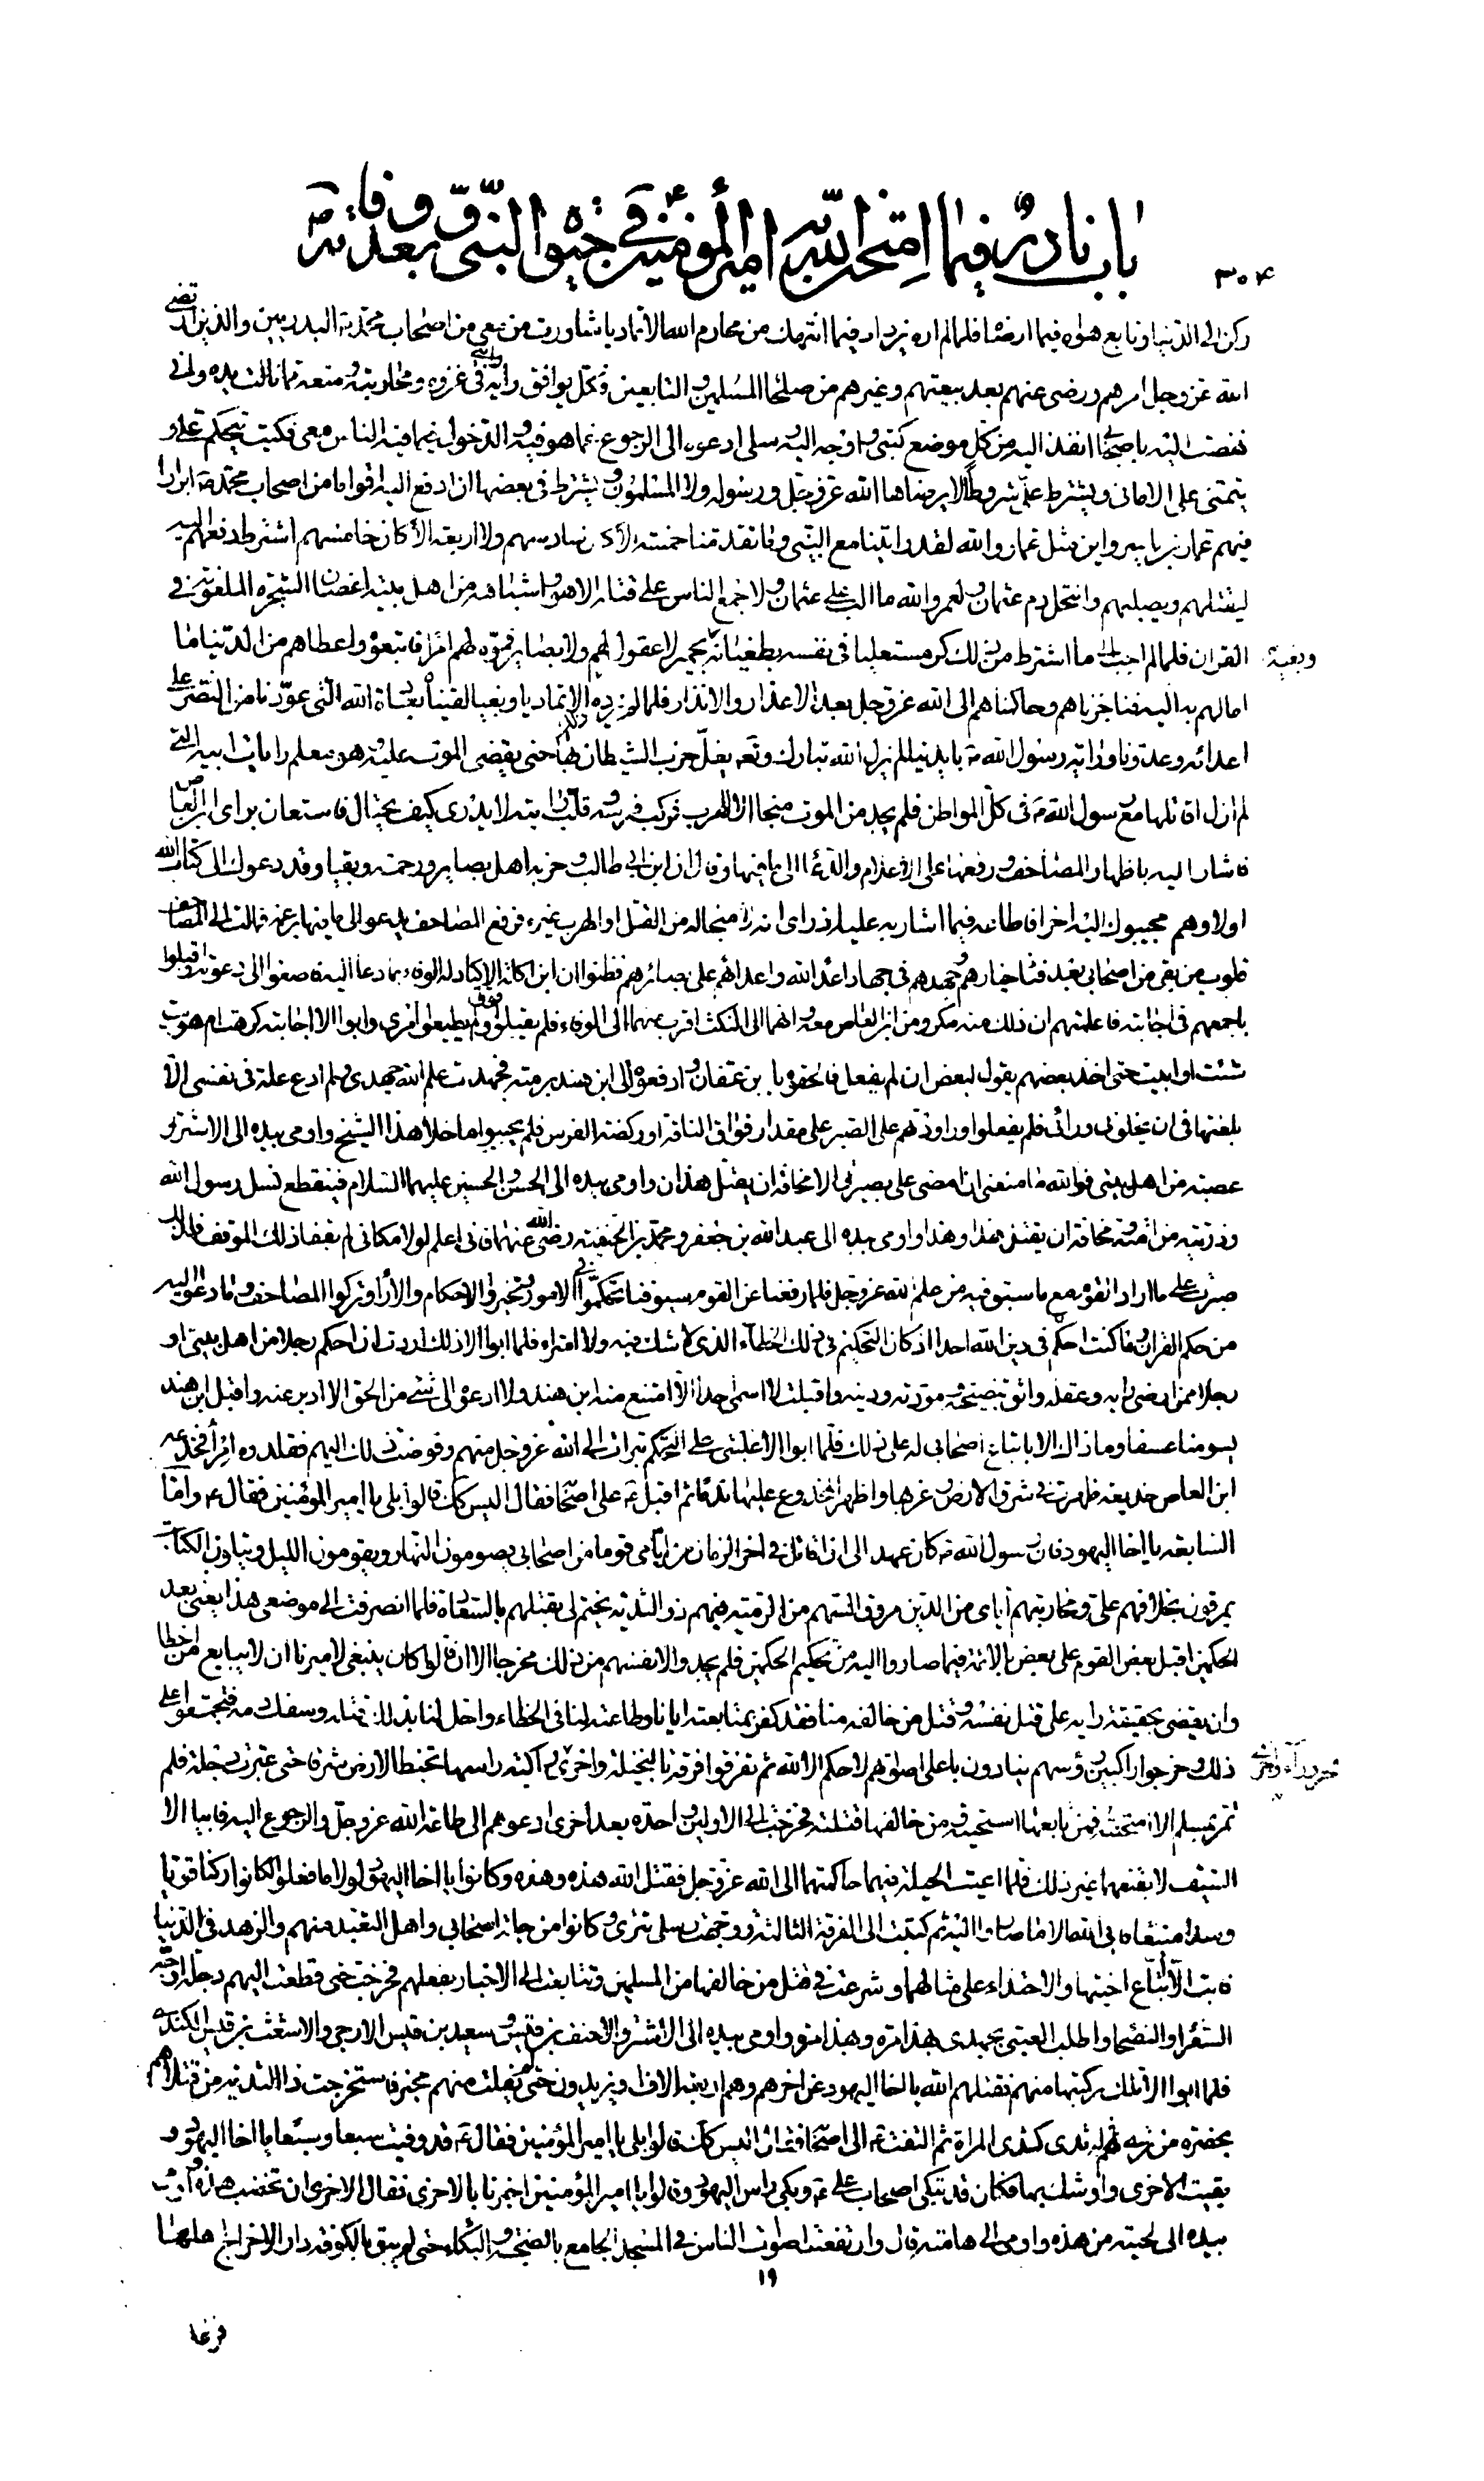 باب نادر فيما امتحن الله به امير المؤمنين في حيوة النبي ص و بعد وفاته
٣٠۴
ركن الى الدنيا و تابع هواه فيما ارضاه فلما لم اره يزداد فيما انتهك من محارم الله الا تماديا شاورت من معي من اصحاب محمد ص البدريين والذين ارتضى
الله عز وجل امرهم ورضى عنهم بعد بيعتهم وغيرهم من صلحاء المسلمين والتابعين فكل يوافق رايه رايى في غزوه و محاربته و منعه مما نالت يده وانى
نهضت اليه باصحابى انفذ اليه من كل موضع كتبى و اوجه اليه رسلى ادعوه الى الرجوع عما هو فيه و الدخول فيما فيه الناس معى فكتب يتحكم على و
يتمنى على الامانى و يشترط على شروطا لا يرضاها الله عز وجل و رسوله ولا المسلمون و يشترط في بعضها ان ادفع اليه اقواما من اصحاب محمد ص ابرارا
فيهم عمار بن ياسر واين مثل عمار والله لقد رايتنا مع النبى و ما تقدمنا خمسة الا كان سادسهم ولا اربعة الا كان خامسهم اشترط دفعهم اليه
ليقتلهم ويصلبهم وانتحل دم عثمان و لعمرو الله ما الب على عثمان و لا جمع الناس على قتله الا هو و اشباهه من اهل بيته اغصان الشجرة الملعونة في
القران فلما لم اجب الى ما اشترط من ذلك كر مستعليا في نفسه بطغيانه و بغيه بحمير لا عقول لهم ولا بصاير فموه لهم امرا فاتبعوه واعطاهم من الدنيا ما
امالهم به اليه فناجزناهم وحاكمناهم الى الله عز وجل بعد الاعذار والانذار فلما لم يزده ذلك الا تماديا و بغيا لقيناه بعادة الله التى عودنا من النصر على
اعدائه وعدونا و راية رسول الله ص بايدينا لم يزل الله تبارك و تعالى يفل حزب الشيطان بها حتى يقضى الموت عليه و هو معلم رايات ابيه التى
لم ازل اقاتلها مع رسول الله ص في كل المواطن فلم يجد من الموت منجا الا الهرب فركب فرسه و قلب رايته لا يدرى كيف يحتال فاستعان براى ابن العاص
فاشار اليه باظهار المصاحف و رفعها على الاعلام والدعاء الى ما فيها وقال ان ابن ابى طالب و حزبه اهل بصاير و رحمة و بقيا وقد دعوك الى كتاب الله
اولا وهم مجيبوك اليه اخرا فاطاعه فيما اشار به عليه اذ راى انه لا منجا له من القتل او الهرب غيره فرفع المصاحف يدعو الى ما فيها بزعمه فمالت الى المصاحف
قلوب من بقى من اصحابى بعد فناء خيارهم و جهدهم في جهاد اعداء الله واعدائهم على بصائرهم فظنوا ان ابن اكلة الاكباد له الوفاء بما دعا اليه فاصغوا الى دعوته و اقبلوا
باجمعهم في اجابته فاعلمتهم ان ذلك منه مكر ومن ابن العاص معه و انهما الى النكث اقرب منهما الى الوفاء فلم يقبلوا قولى ولم يطيعوا امرى وابوا الا اجابته كرهت ام هويت
شئت او ابيت حتى اخذ بعضهم يقول لبعض ان لم يفعل فالحقوه بابن عفان و ادفعوه الى ابن هند برمته فجهدت علم الله جهدى ولم ادع علة في نفسى الا
بلغتها في ان يخلونى ورائى فلم يفعلوا وراودتهم على الصبر على مقدار فواق الناقة او ركضة الفرس فلم يجيبوا ما خلا هذا الشيخ واومى بيده الى الاشتر و
عصبة من اهل بيتى فوالله ما منعنى ان امضى على بصيرتى الا مخافة ان يقتل هذان واومى بيده الى الحسن و الحسين عليهما السلام فينقطع نسل رسول الله
و ذريته من امته و مخافة ان يقتل هذا و هذا و اومى بيده الى عبد الله بن جعفر و محمد بن الحنفية رضى الله عنهما فانى اعلم لولا مكانى لم يقفا ذلك الموقف فلذلك
صبرت على ما اراد القوم مع ما سبق فيه من علم الله عز وجل فلما رفعنا عن القوم سيوفنا تحكموا في الامور و تخيروا الاحكام والاراء و تركوا المصاحف و ما دعوا اليه
من حكم القران و ما كنت احكم في دين الله احدا اذ كان التحكيم في ذلك الخطاء الذى لا شك فيه ولا امتراء فلما ابوا الا ذلك اردت ان احكم رجلا من اهل بيتى او
رجلا ممن ارضى رايه وعقله واثق بنصيحته و مودته ودينه واقبلت لا اسمى احدا الا امتنع منه ابن هند ولا ادعوه الى شئ من الحق الا ادبر عنه واقبل ابن هند
يسومنا عسفا وما ذاك الا باتباع اصحابى له على ذلك فلما ابوا الا غلبتى على التحكم تبرات الى الله عز وجل منهم و فوضت ذلك اليهم فقلدوه امرأ فخدعه
ابن العاص خديعة ظهرت في شرق الارض و غربها واظهر المخدوع عليها ندما ثم اقبل ع على اصحابه فقال اليس كذلك قالوا بلى يا امير المؤمنين فقال ع واما
السابعة يا اخا اليهود فان رسول الله ص كان عهد الى ان اقاتل في اخر الزمان من ايامى قوما من اصحابى يصومون النهار و يقومون الليل و يتلون الكتاب
يمرقون بخلافهم على و محاربتهم اياى من الدين مروق السهم من الرمية فيهم ذو الثدية يختم لى بقتلهم بالسعادة فلما انصرفت الى موضعى هذا يعنى بعد
الحكمين اقبل بعض القوم على بعض بالائمة فيما صاروا اليه من تحكيم الحكمين فلم يجدوا لانفسهم من ذلك مخرجا الا ان قالوا كان ينبغى لاميرنا ان لا يبايع من اخطا
وان يقضى بحقيقة رايه على قتل نفسه و قتل من خالفه منا فقد كفر بمتابعته ايانا وطاعته لنا في الخطاء واحل لنا بذلك قتله وسفك دمه فتجمعوا على
ذلك و خرجوا راكبين رؤسهم ينادون باعلى اصواتهم لا حكم الا لله ثم تفرقوا فرقة بالنخيلة واخرى بحروراء واخرى راكبة راسها تخبط الارض شرقا حتى عبرت دجلة فلم
تمر بمسلم الا امتحنته فمن تابعها استحيته و من خالفها قتلته فخرجت الى الاوليين واحدة بعد اخرى ادعوهم الى طاعة الله عز وجل والرجوع اليه فابيا الا
السيف لا يقنعهما غير ذلك فلما اعيت الحيلة فيهما حاكمتهما الى الله عز وجل فقتل الله هذه وهذه وكانوا يا اخا اليهود لولا ما فعلوا لكانوا ركنا قويا
وسدا منيعا فابى الله الا ما صاروا اليه ثم كتبت الى الفرقة الثالثة و وجهت رسلى تترى و كانوا من جلة اصحابى واهل التعبد منهم والزهد في الدنيا
فابت الا اتباع اختيها والاحتذاء على مثالهما و شرعت في قتل من خالفها من المسلمين و تتابعت الى الاخبار بفعلهم فخرجت حتى قطعت اليهم دجلة اوجه
السفراء والنصحاء واطلب العتبى بجهدى بهذا مرة وبهذا مرة واومى بيده الى الاشتر والاحنف بن قيس و سعيد بن قيس الارحبى والاشعث بن قيس الكندى
فلما ابوا الا تلك ركبتها منهم فقتلهم الله يا اخا اليهود عن اخرهم وهم اربعة الاف او يزيدون حتى لم يفلت منهم مخبر فاستخرجت ذا الثدية من قتلاهم
بحضرة من ترى له ثدى كثدى المراة ثم التفت ع الى اصحابه فقال اليس كذلك قالوا بلى يا امير المؤمنين فقال ع قد وفيت سبعا وسبعا يا اخا اليهود و
بقيت الاخرى و اوشك بها فكان قد فبكى اصحاب على ع وبكى راس اليهود و قالوا يا امير المؤمنين اخبرنا بالاخرى فقال الاخرى ان تخضب هذه و اومى
بيده الى لحيته من هذه واومى الى هامته قال وارتفعت اصوات الناس في المسجد الجامع بالضجة و البكاء حتى لم يبق بالكوفة دار الا خرج اهلها
١٩
فزعا